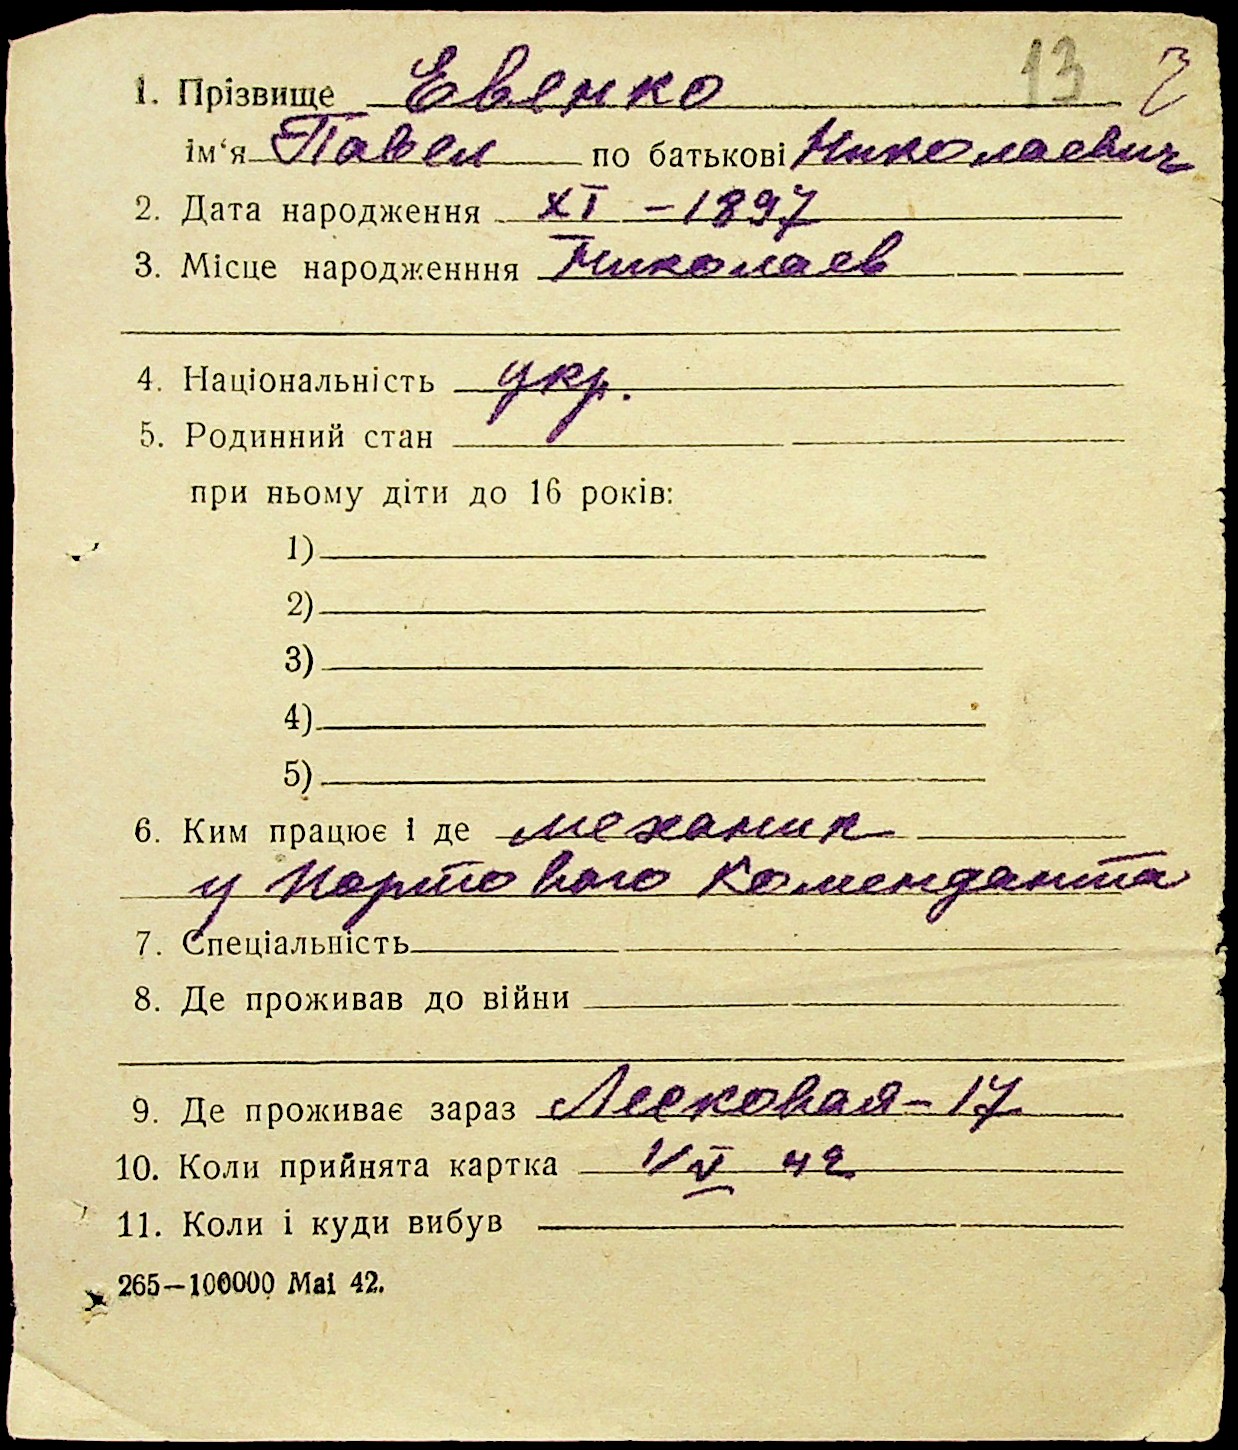 13
1. Прізвище Евенко
ім‘я Павел по батькові Николаевич
2. Дата народження XI - 1897
3. Місце народженння Николаев
4. Національність укр.
5. Родинний стан
при ньому діти до 16 років:
1)
2)
3)
4)
5)
6. Ким працює і де механик
у Портового Коменданта
7. Спеціальність
8. Де проживав до війни
9. Де проживає зараз Лесковая - 17
10. Коли прийнята картка 1/V 42
11. Коли і куди вибув
265—100000 Mai 42.